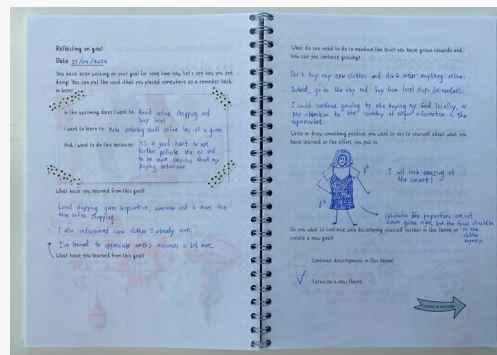 Reflecting on goal
Date 27/04/2024
You have been working on your goal for some time now. Let's see how you are
doing! You can put the card that you placed somewhere as a reminder back
in here!
In the upcoming days I want to: Avoid online shopping and
buy local
I want to learn to: make ordering stuff online less of a given
And I want to do this because: It's a good habit to not
further pollute the air and
to be more conscious about my
buying behaviour
What have you learned from this goal?
Local shopping gives inspiration, overview and is more fun
than online shopping.
I also rediscovered some clothes I already own.
I've learned to appreciate earth's resources a bit more.
What have you learned from this goal?
What do you need to do to maintain the level you have grown towards and
how can you continue growing?
Don't buy any new clothes and don't order anything online.
Instead, go to the city and buy from local shops (if needed).
I could continue growing by also buying my food locally, or
pay attention to the country of origin information in the
supermarket.
Write or draw something positive you want to say to yourself about what you
have learned or the effort you put in
I will look amazing at
the concert!
(whahaha the proportions are not
drawn quite right, but the focus should be
on the
clothes
anyway)
Do you want to continue with developing yourself further in this theme or
create a new goal?
Continue development in this theme
Focus on a new theme